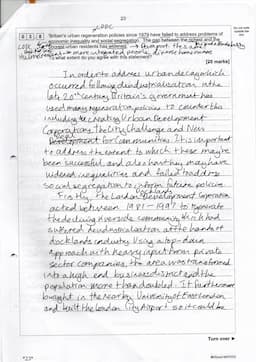 23
LDDC
Do not write outside the box
0 5 . 6 'Britain's urban regeneration policies since 1979 have failed to address problems of
economic inequality and social segregation. The gap between the richest and the
poorest urban residents has widened.'
To what extent do you agree with this statement?
[20 marks]
In order to address urban decay which
occurred following deindustrialisation in the
late 20th century, Britain's government have
used many regeneration policies to counter this
including the creating Urban Development
Corporations, the City Challenge and New
Deal
for Communities. It is important
to address the extent to which these may've
been successful, and also how they may have
widened inequalities and failed to address
social segregation to inform future policies.
Firstly, the London Docklands Development Corporation
acted between 1981-1997 to regenerate
the declining riverside community which had
suffered deindustrialisation at the hands of
docklands industry. Using a top-down
approach with heavy input from private
sector companies, the area was transformed
into a high end business district and the
population more than doubled. It furthermore
brought in the nearby University of East London
and built the London City Airport so it could be
Turn over ►
*23*